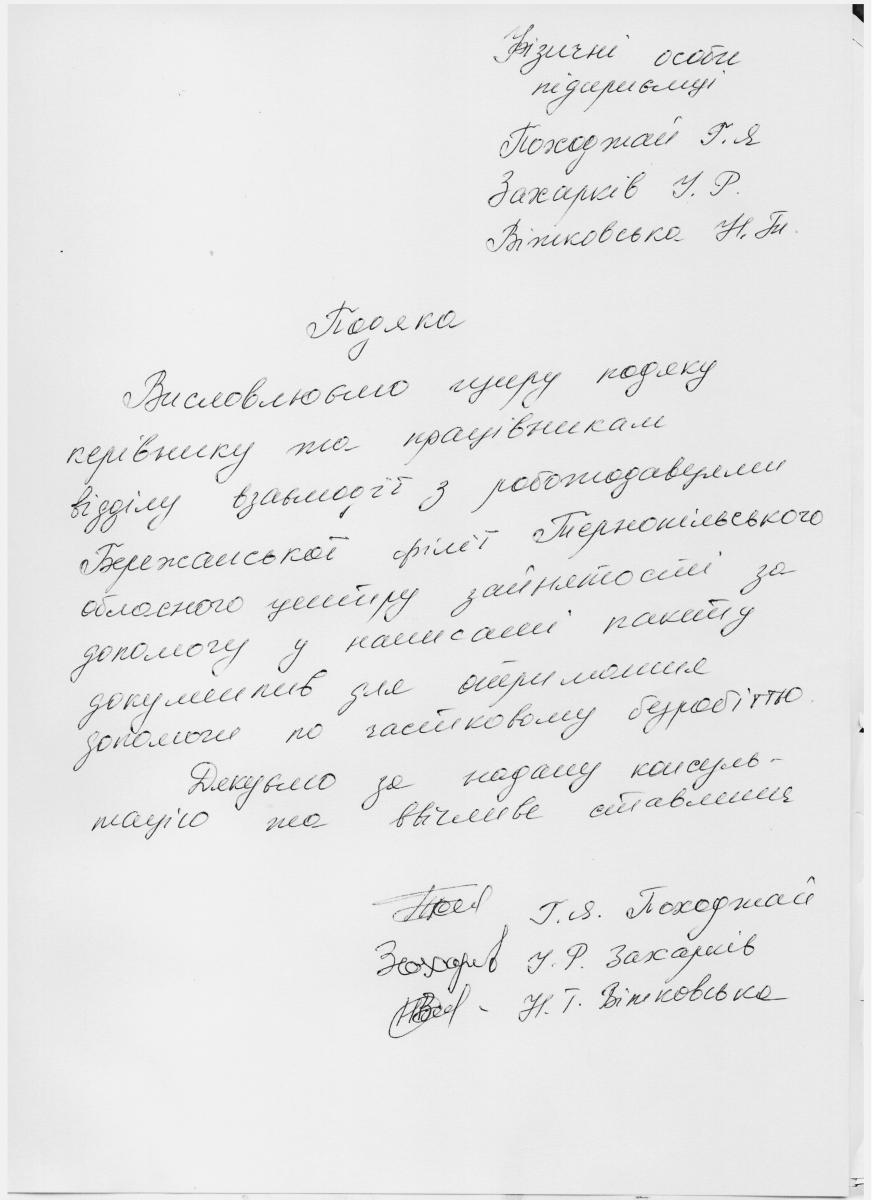 Фізичні особи
підприємці
Походжай Г.Я
Захарків У.Р.
Вітковська Н.Т.
Подяка
Висловлюємо щиру подяку
керівнику та працівникам
відділу взаємодії з роботодавцями
Бережанської філії Тернопільського
обласного центру зайнятості за
допомогу у написанні пакету
документів для отримання
допомоги по частковому безробіттю.
Дякуємо за надану консуль-
тацію та ввічливе ставлення
Г.Я. Походжай
Захарків У.Р. Захарків
Н.Т. Вітковська